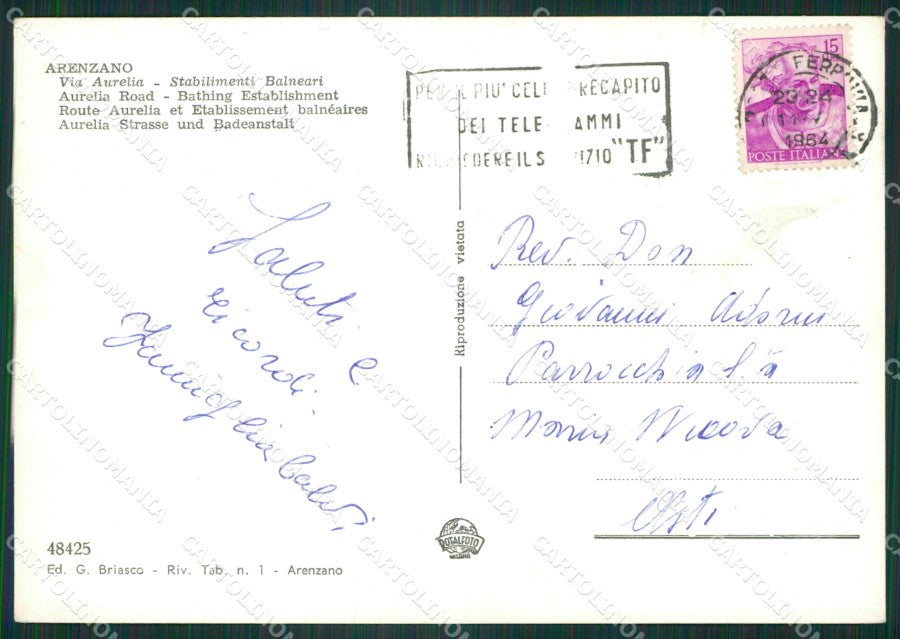 ARENZANO
Via Aurelia - Stabilimenti Balneari
Aurelia Road - Bathing Establishment
Route Aurelia et Etablissement balnéaires
Aurelia Strasse und Badeanstalt
PER IL PIU' CELE RECAPITO
DEI TELE AMMI
RICHIEDERE IL S 1710 "TF"
15
FERROVIA
23-24
1964
POSTE ITALIANE
Saluti e
ricordi -
Famiglia
Riproduzione vietata
Rev. Don
Giovanni
Parrocchia S.a
Maria Nuova
Asti
48425
Ed. G. Briasco - Riv. Tab. n. 1 - Arenzano
ROTALFOTO
MILANO
CARTOLINOMANIA